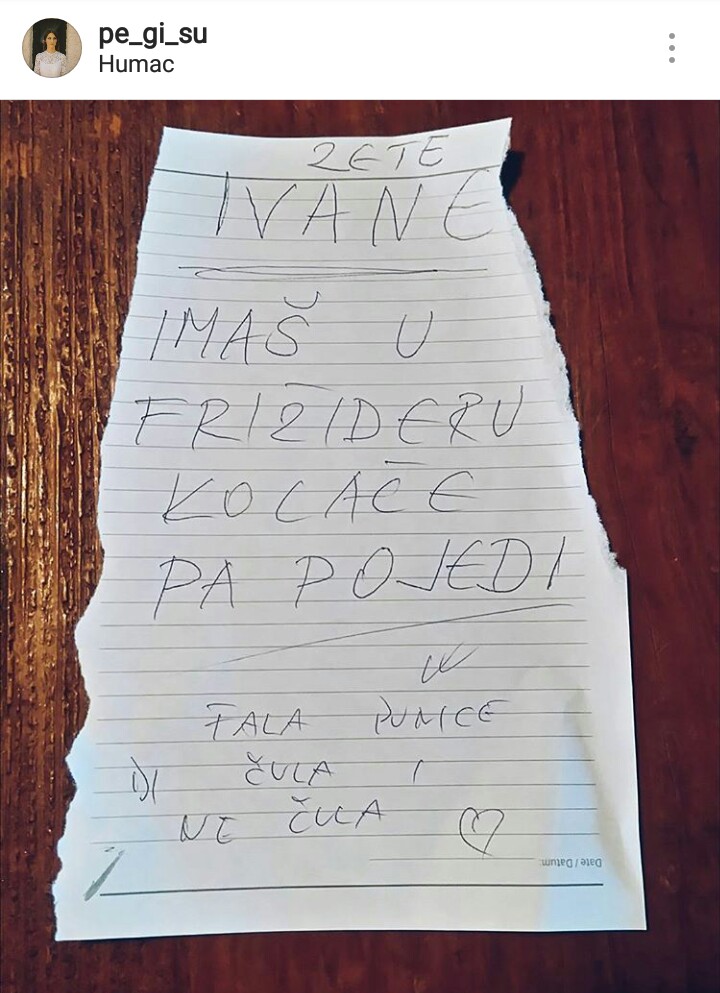 pe_gi_su
Humac
ZETE
IVANE
IMAŠ U
FRIŽIDERU
KOLAČE
PA POJEDI
FALA PUNICE
DI ČULA I
NE ČULA ♡
Date / Datum: